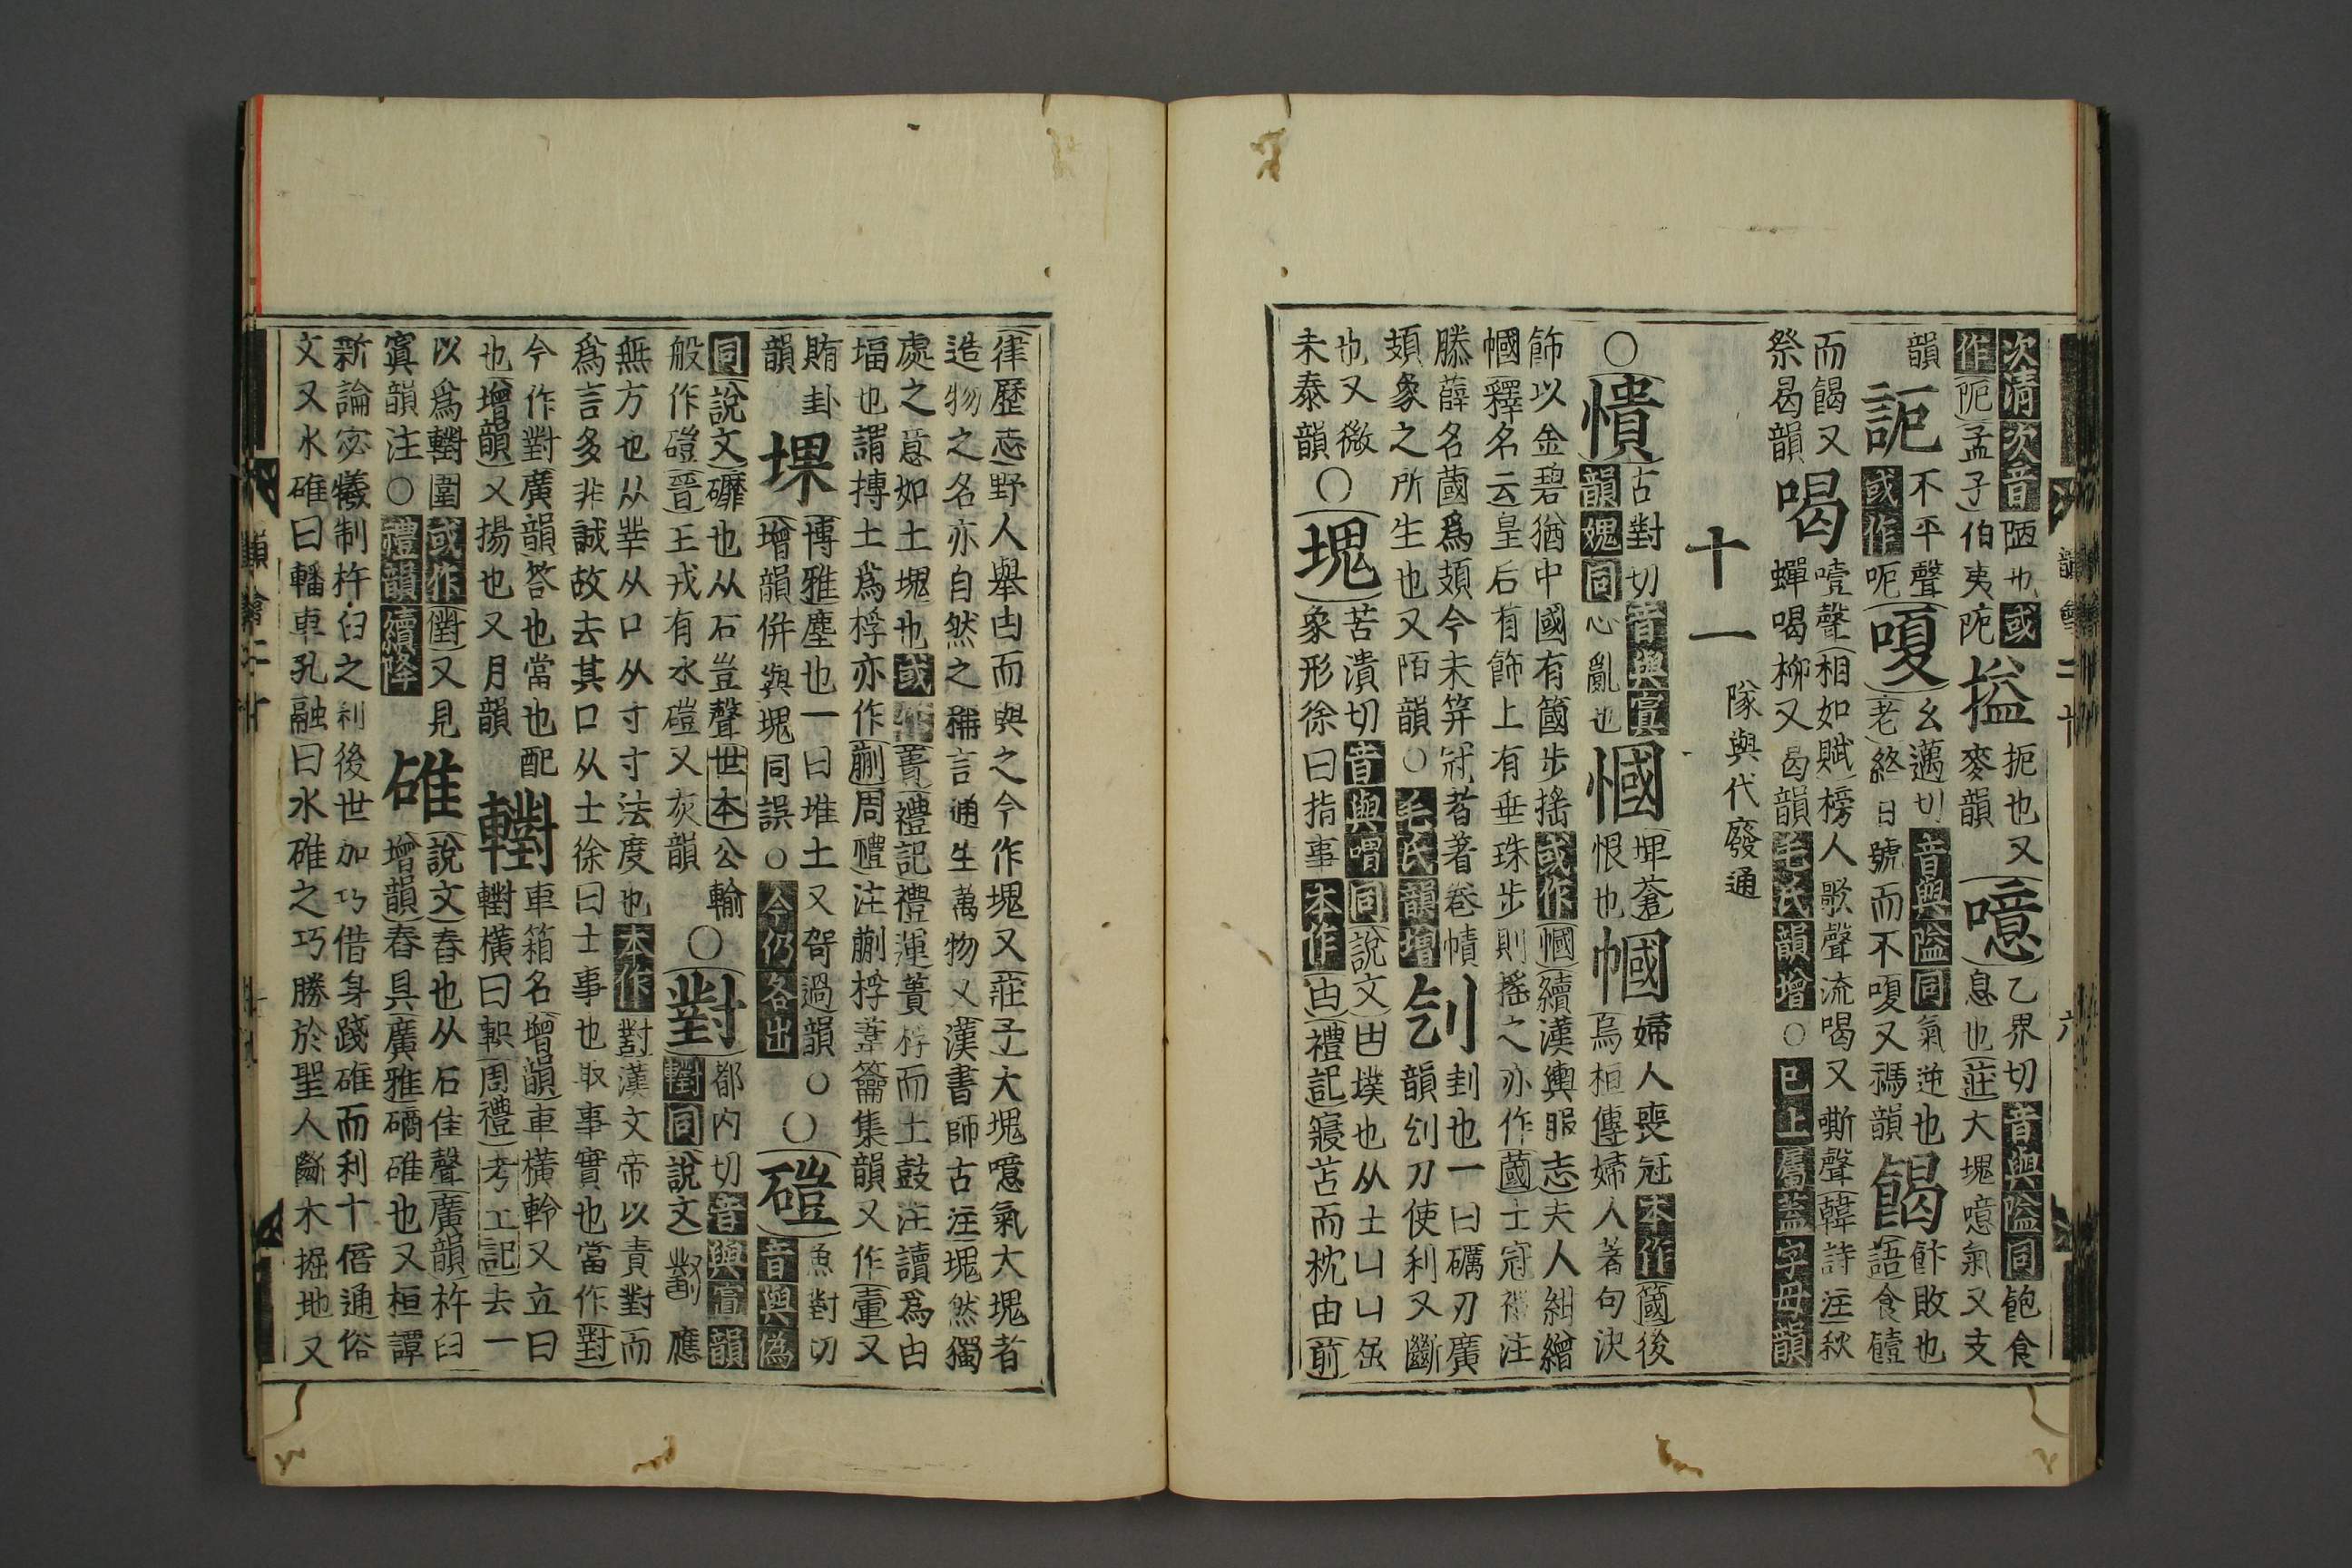 次清次音陋也或
作阸孟子伯夷阸
搤
扼也又
麥韻
噫
乙界切音與隘同飽食
息也莊大塊噫氣又支
韻
不平聲
或作呃
嗄
幺邁切音與隘同氣逆也
老終日號而不嗄又禡韻
餲
飰敗也
語食饐
而餲又
祭曷韻
喝
噎聲相如賦榜人歌聲流喝又嘶聲韓詩注秋
蟬喝柳又曷韻毛氏韻增○已上屬蓋字母韻
十一
隊與代廢通
○憒
古對切音與寘
韻媿同心亂也
慖
埤蒼
恨也
幗
婦人喪冠本作簂後
烏桓傳婦人著句決
飾以金碧猶中國有簂步搖或作幗續漢輿服志夫人紺繒
幗釋名云皇后首飾上有垂珠步則搖之亦作蔮士冠禮注
滕薛名蔮爲頍今未笄冠者著卷幘
頍象之所生也又陌韻○毛氏韻增
刉
刲也一曰礪刃廣
韻刉刀使利又斷
也又微
未泰韻
○塊
苦潰切音與喟同說文凷墣也从土凵凵屈
象形徐曰指事本作凷禮記寢苫而枕由前
律歷志野人舉凷而與之今作塊又莊子大塊噫氣大塊者
造物之名亦自然之稱言通生萬物又漢書師古注塊然獨
處之意如土塊也或作蕢禮記禮運蕢桴而土鼓注讀爲凷
堛也謂摶土爲桴亦作蒯周禮注蒯桴葦籥集韻又作𧃒又
賄卦
韻
堁
博雅塵也一曰堆土又哿過韻○
增韻併與塊同誤○今仍各出
○磑
魚對切
音與僞
同說文䃺也从石豈聲世本公輸
般作磑晉王戎有水磑又灰韻
○對
都內切音與寘韻
轛同說文對應
無方也从丵从口从寸寸法度也本作對漢文帝以責對而
爲言多非誠故去其口从士徐曰士事也取事實也當作對
今作對廣韻答也當也配
也增韻又揚也又月韻
轛
車箱名增韻車橫軨又立曰
轛橫曰軹周禮考工記去一
以爲轛圍或作𨎴又見
寘韻注○禮韻續降
碓
說文舂也从石隹聲廣韻杵臼
增韻舂具廣雅碻碓也又桓譚
新論宓犧制杵臼之利後世加巧借身踐碓而利十倍通俗
文又水碓曰轓車孔融曰水碓之巧勝於聖人斷木掘地又